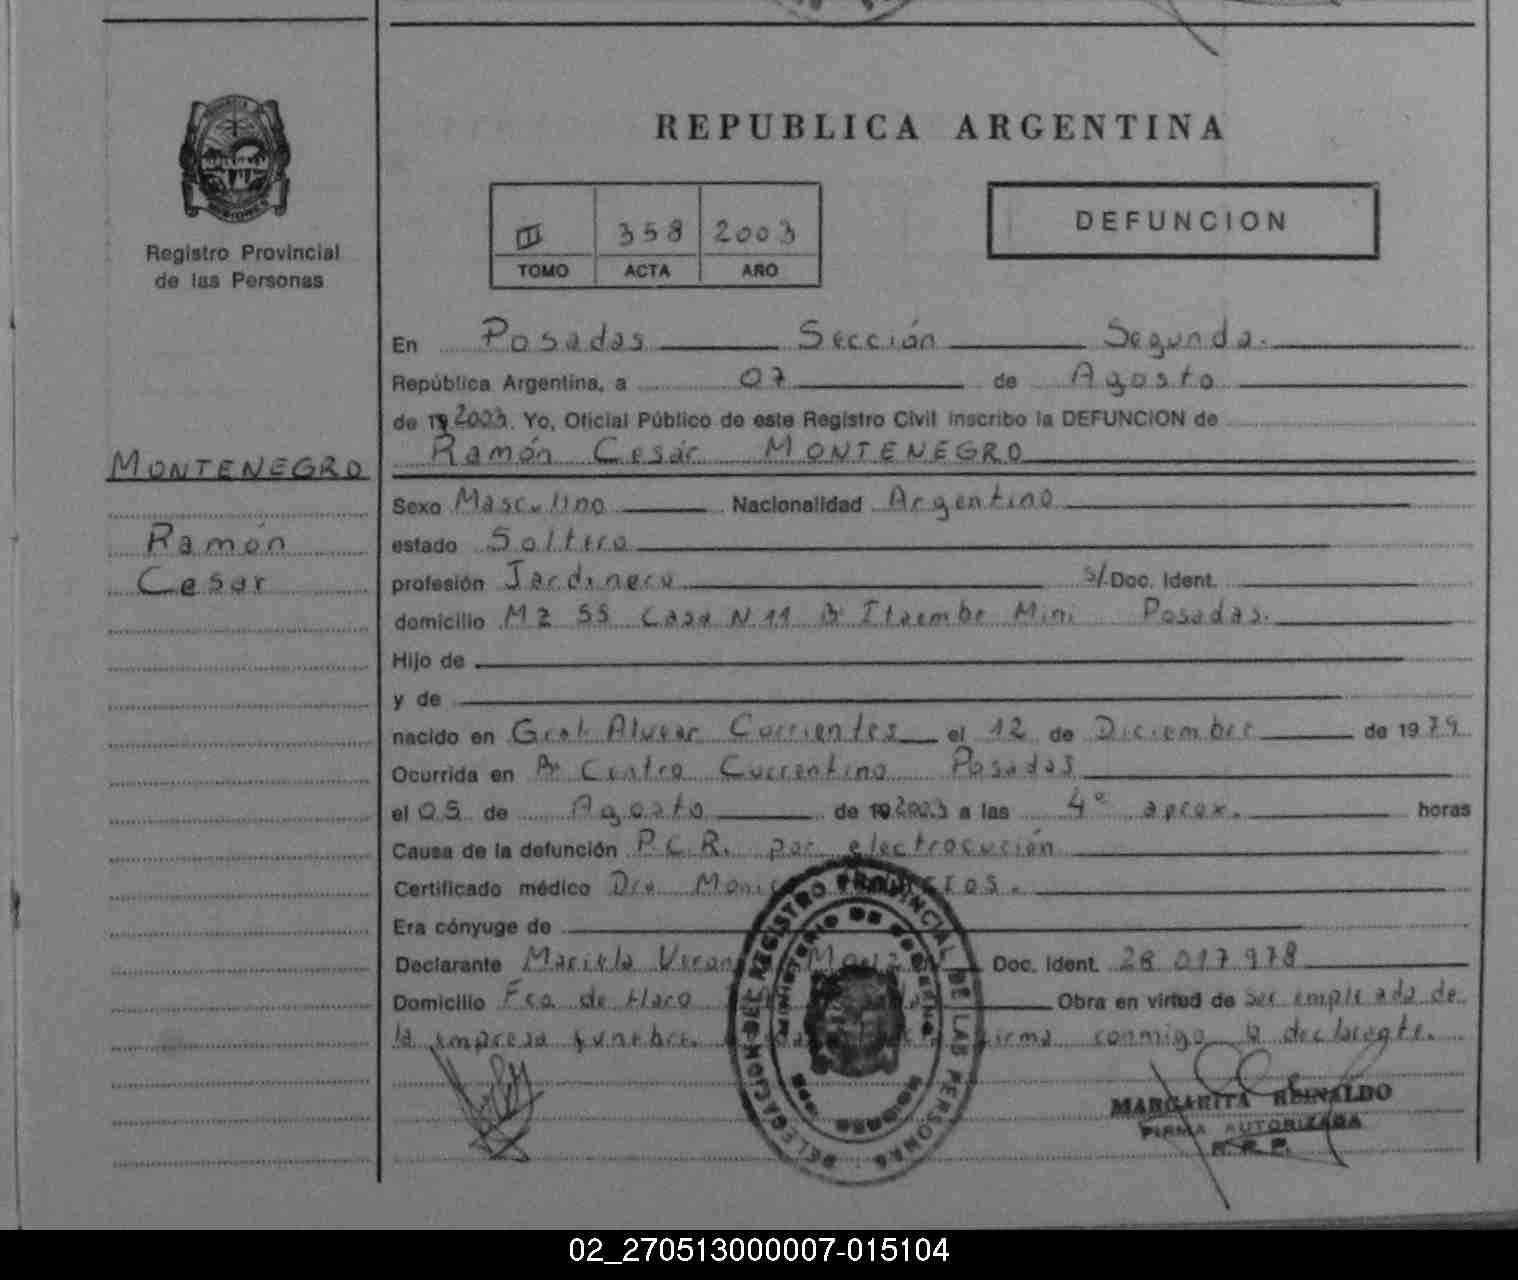 REPUBLICA ARGENTINA
MISIONES
Registro Provincial
de las Personas
III 358 2003
TOMO ACTA AÑO
DEFUNCION
En Posadas Sección Segunda.
República Argentina, a 07 de Agosto
de 19 2003. Yo, Oficial Público de este Registro Civil inscribo la DEFUNCION de
Ramón Cesár MONTENEGRO
MONTENEGRO
Ramón
Cesar
Sexo Masculino Nacionalidad Argentino
estado Soltero
profesión Jardinero s/. Doc. Ident.
domicilio Mz 55 Casa N 11 Bº Itaembe Mini Posadas.
Hijo de
y de
nacido en Gral Alvear Corrientes el 12 de Diciembre de 1979
Ocurrida en Bº Centro Correntino Posadas
el 05 de Agosto de 19 2003 a las 4º aprox. horas
Causa de la defunción P.C.R. por electrocución
Certificado médico Dra Monica
Era cónyuge de
Declarante Mariela Doc. Ident. 28 017 978
Domicilio Fco de Haro Obra en virtud de ser empleada de
la empresa funebre. firma conmigo la declarante.
DELEGACION DEL REGISTRO PROVINCIAL DE LAS PERSONAS
MINISTERIO DE GOBIERNO
POSADAS
MARGARITA REINALDO
FIRMA AUTORIZADA
R. P. P.
02_270513000007-015104